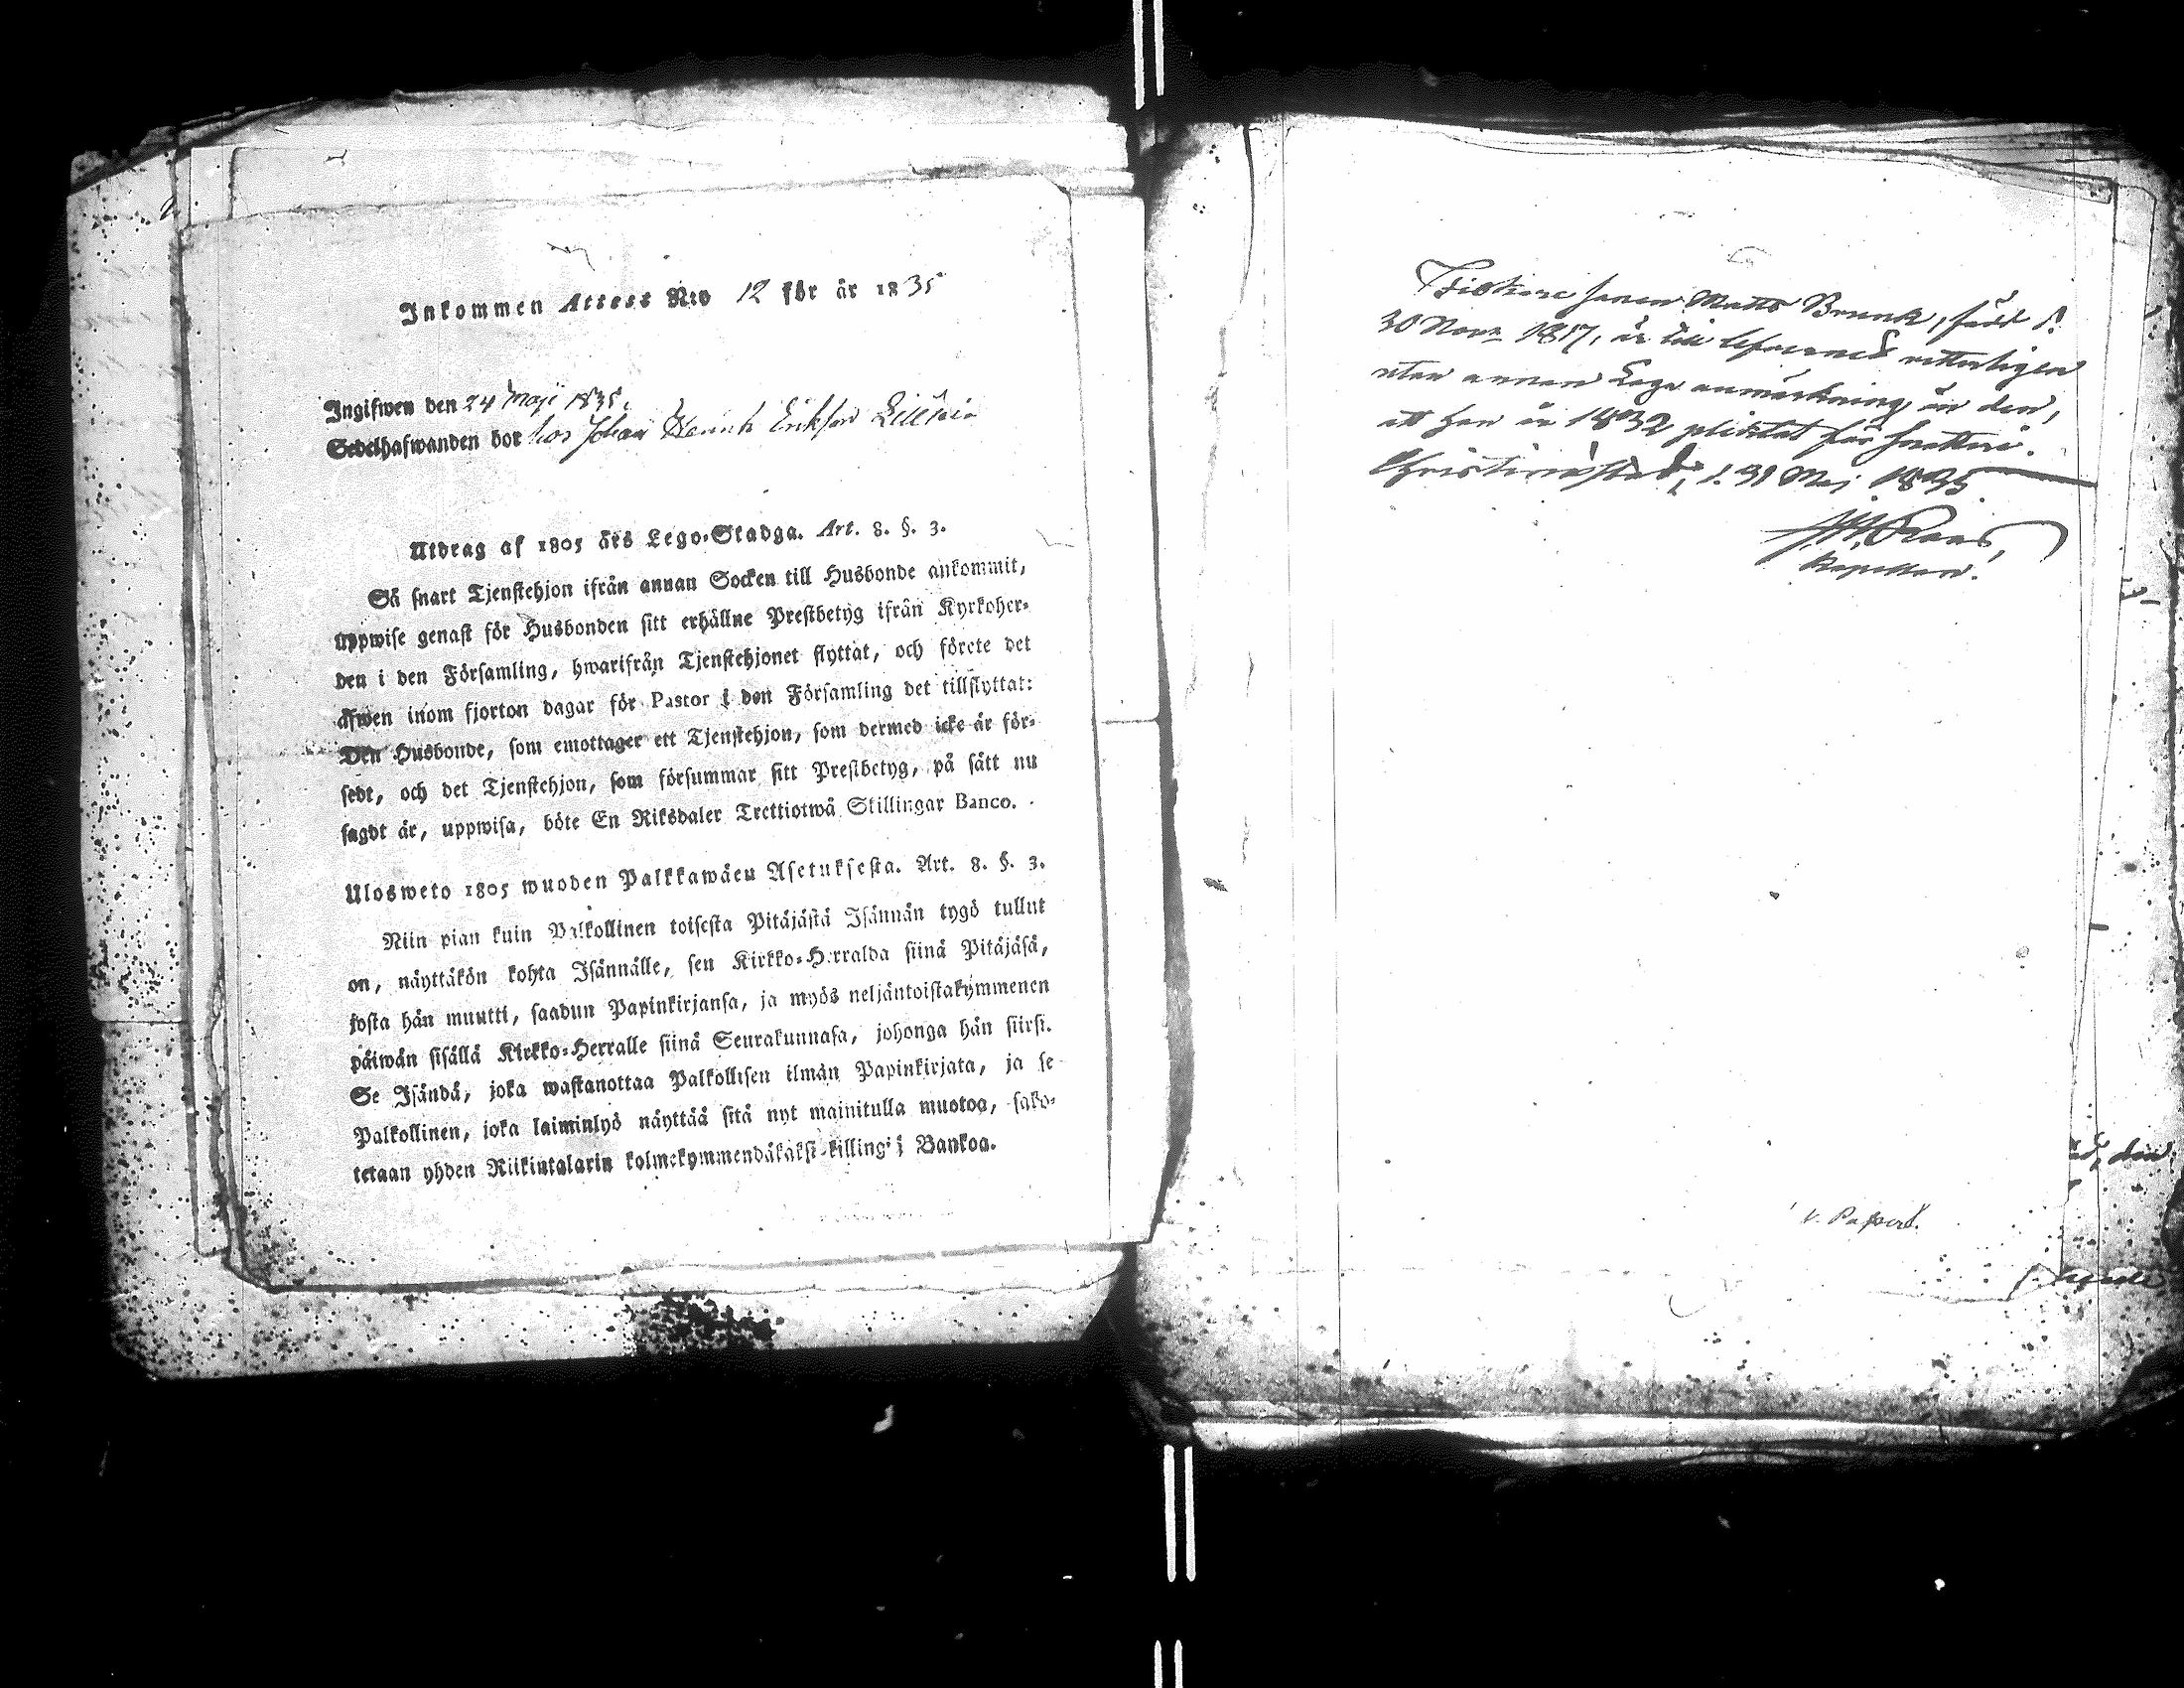 Inkommen Attest N:o 12 för år 1835
Ingifwen den 24 Maji 1835.
Sedelhafwanden bor hos Johan Henrik Erikson
Utdrag af 1805 års Lego-Stadga. Art. 8. §. 3.
Så snart Tjenstehjon ifrån annan Socken till Husbonde ankommit,
uppwise genast för Husbonden sitt erhållne Prestbetyg ifrån Kyrkoher-
den i den Församling, hwarifrån Tjenstehjonet flyttat, och förete det
äfwen inom fjorton dagar för Pastor i den Församling det tillflyttat:
Den Husbonde, som emottager ett Tjenstehjon, som dermed icke är för-
sedt, och det Tjenstehjon, som försummar sitt Prestbetyg, på sätt nu
sagdt är, uppwisa, böte En Riksdaler Trettiotwå Skillingar Banco.
Ulosweto 1805 wuoden Palkkawäen Asetuksesta. Art. 8. §. 3.
Niin pian kuin Palkollinen toisesta Pitäjästä Isännän tygö tullut
on, näyttäkön kohta Isännälle, sen Kirkko-Herralda siinä Pitäjäsä,
josta hän muutti, saadun Papinkirjansa, ja myös neljäntoistakymmenen
päiwän sisällä Kirkko-Herralle siinä Seurakunnasa, johonga hän siirsi.
Se Isändä, joka wastanottaa Palkollisen ilman Papinkirjata, ja se
Palkollinen, joka laiminlyö näyttää sitä nyt mainitulla muotoa, sako-
tetaan yhden Riikintalarin kolmekymmendäkaksi killingiä Bankoa.
Fiskare sonen Matts Brunk, född d.
30 Nov. 1817, är till lefverned
utan annan Laga anmärkning än den,
att han år 1832 pliktat för snatteri.
Christinæstad, d. 31 Maj 1835.
Kapellan.
v. Pastor.
den